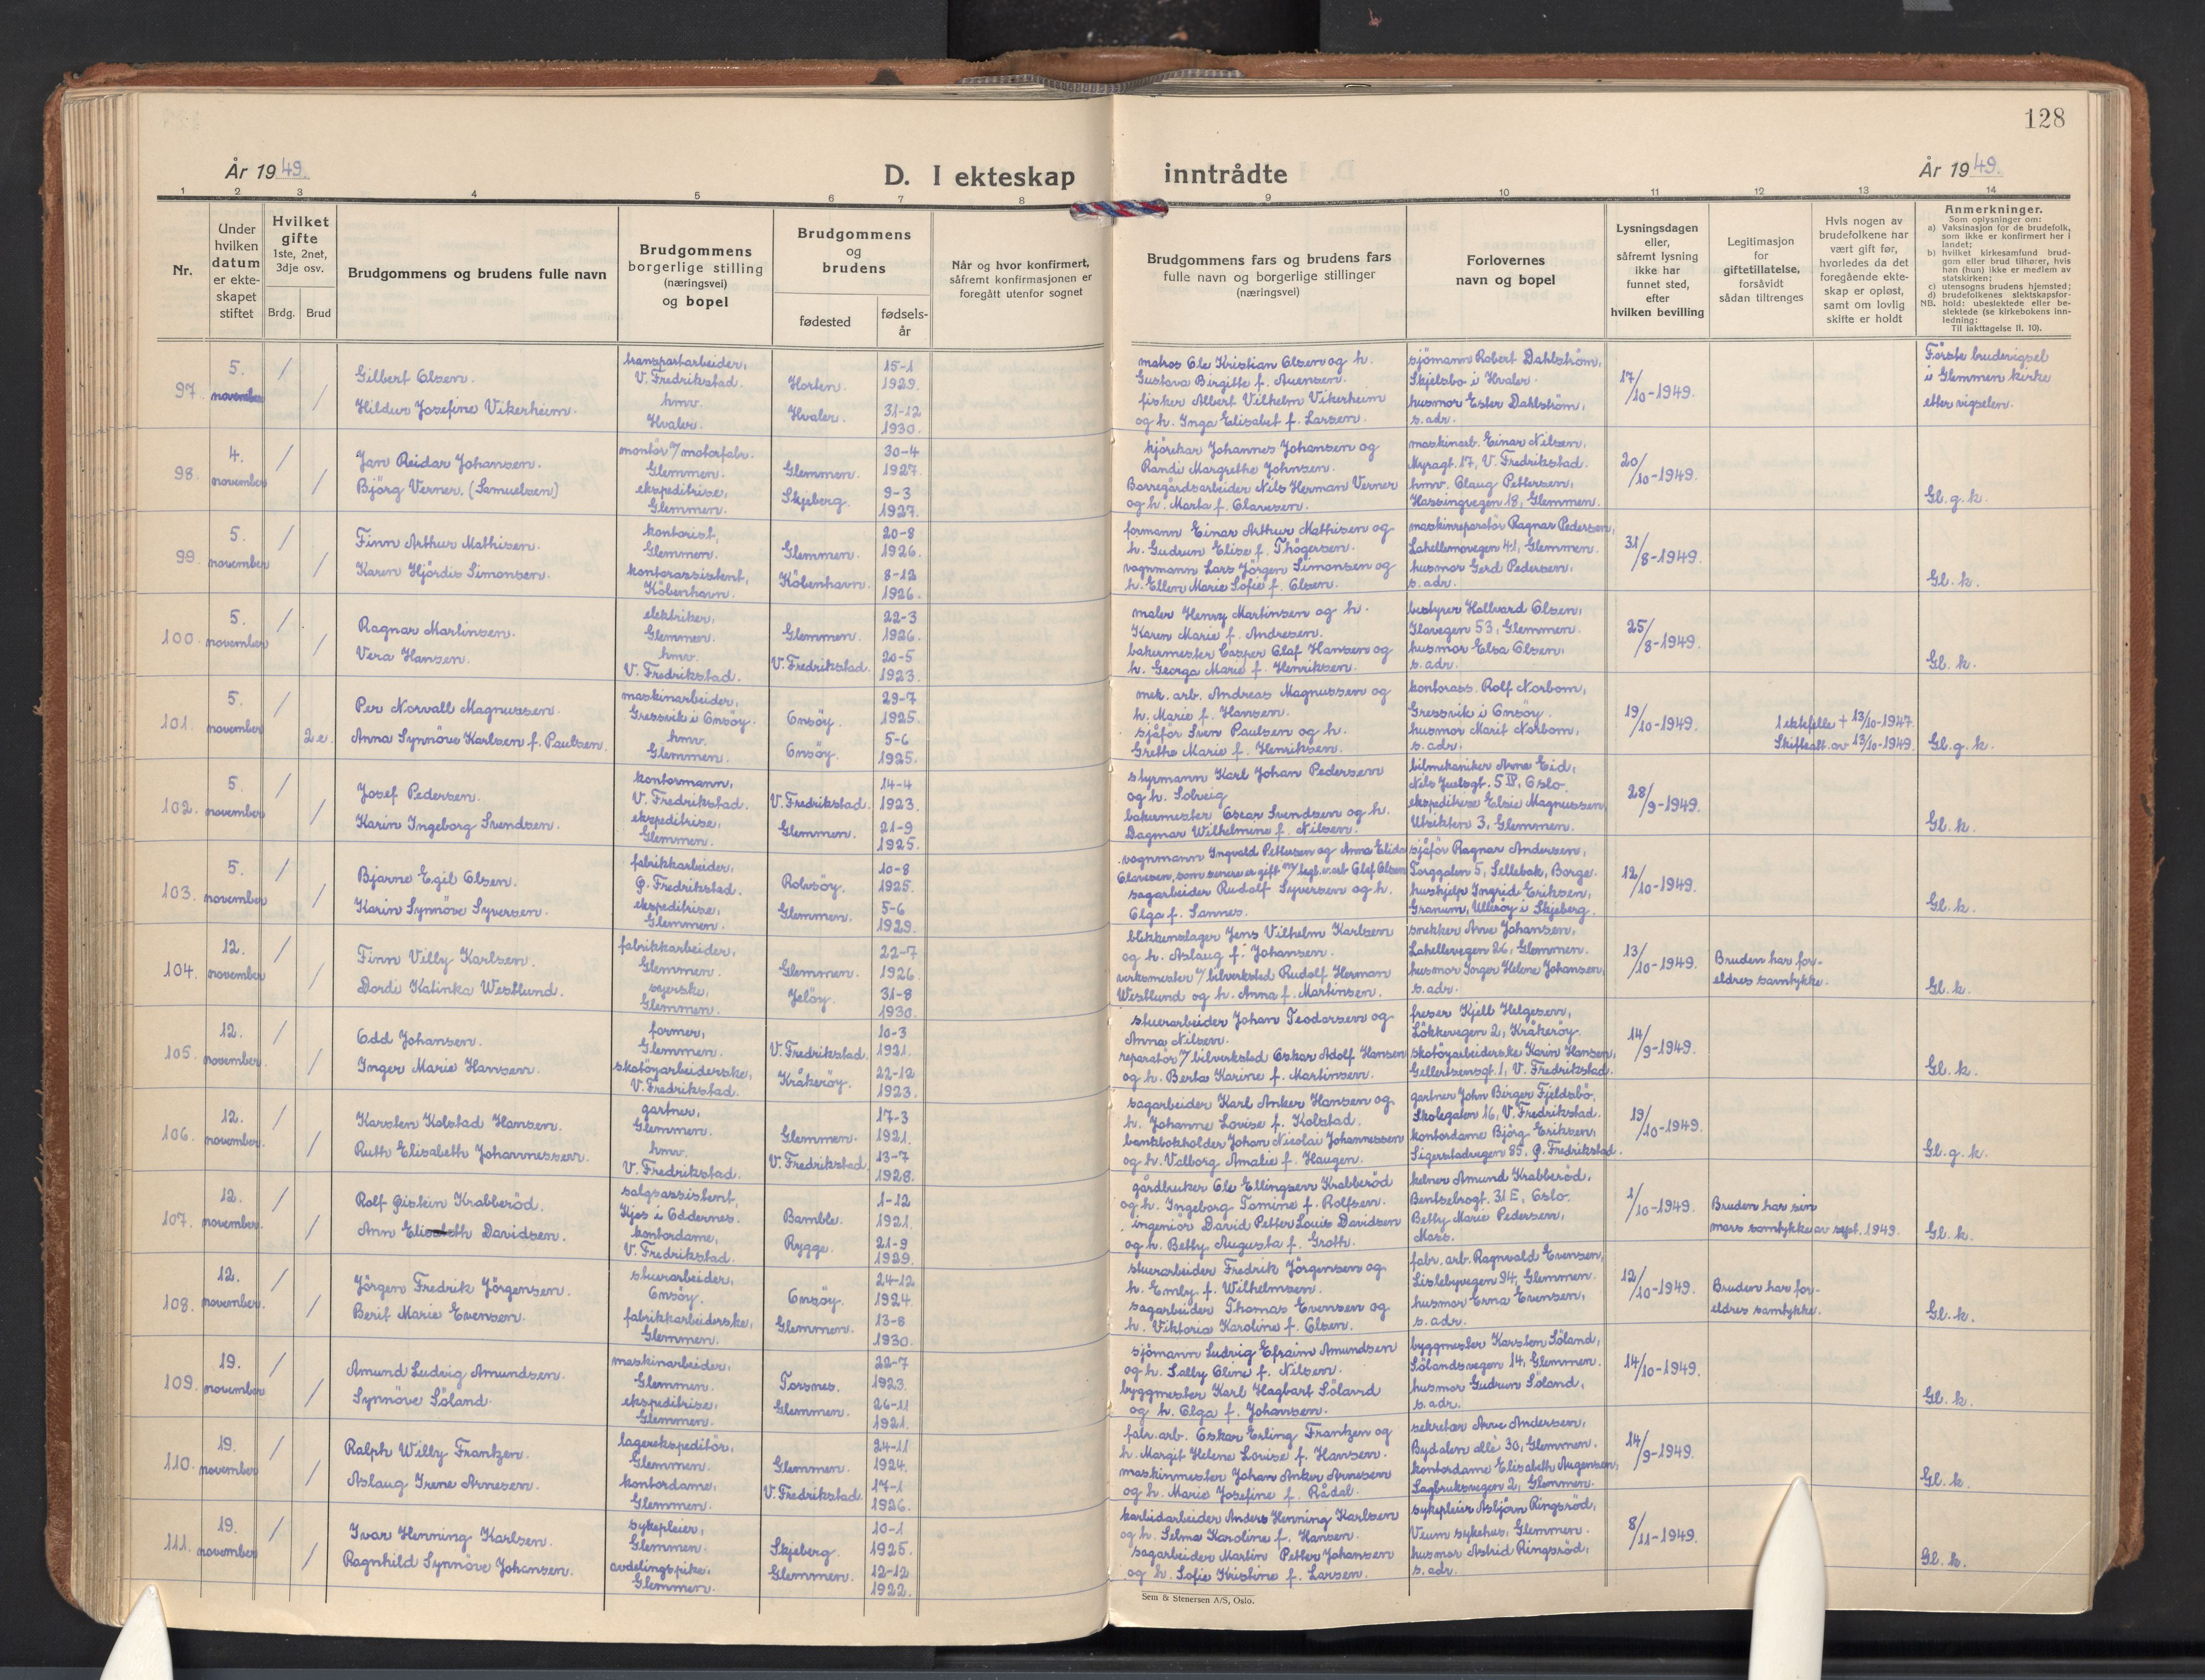 128
År 1949.
D. I ekteskap inntrådte
År 1949.
1 2 3 4 5 6 7 8 9 10 11 12 13 14
Nr.
Under hvilken datum er ekteskapet stiftet
Hvilket gifte 1ste, 2net, 3dje osv.
Brdg. Brud
Brudgommens og brudens fulle navn
Brudgommens borgerlige stilling (næringsvei) og bopel
Brudgommens og brudens
fødested
fødselsår
Når og hvor konfirmert, såfremt konfirmasjonen er foregått utenfor sognet
Brudgommens fars og brudens fars fulle navn og borgerlige stillinger (næringsvei)
Forlovernes navn og bopel
Lysningsdagen eller, såfremt lysning ikke har funnet sted, efter hvilken bevilling
Legitimasjon for giftetillatelse, forsåvidt sådan tiltrenges
Hvis nogen av brudefolkene har vært gift før, hvorledes da det foregående ekteskap er opløst, samt om lovlig skifte er holdt
Anmerkninger.
Som oplysninger om:
a) Vaksinasjon for de brudefolk, som ikke er konfirmert her i landet;
b) hvilket kirkesamfund brudgom eller brud tilhører, hvis han (hun) ikke er medlem av statskirken;
c) utensogns brudens hjemsted;
d) brudefolkenes slektskapsforhold: ubeslektede eller beslektede (se kirkebokens innledning:
NB. Til iakttagelse II. 10).
97. 5. november / /
Gilbert Olsen.
Hildur Josefine Vikerheim.
transportarbeider, V. Fredrikstad.
hmv. Hvaler.
Horten. 15-1 1929.
Hvaler. 31-12 1930.
matros Ole Kristian Olsen og h.
Gustava Birgitte f. Auensen.
fisker Albert Vilhelm Vikerheim
og h. Inga Elisabet f. Larsen.
sjömann Robert Dahlström,
Skjelsbo i Hvaler.
husmor Ester Dahlström,
s. adr.
17/10-1949.
Förste brudevigsel
i Glemmen kirke
etter vigselen.
98. 4. november / /
Jan Reidar Johansen.
Björg Verner. (Samuelsen)
montör v/ motorfabr. Glemmen.
ekspeditrise, Glemmen.
Glemmen. 30-4 1927.
Skjeberg. 9-3 1927.
kjörekar Johannes Johansen og
Randi Margrethe Johnsen.
Borregårdsarbeider Nils Herman Verner
og h. Marta f. Olavesen.
maskinarb. Einar Nilsen,
Myragt. 17, V. Fredrikstad.
hmv. Olaug Pettersen,
Hassingvegen 18, Glemmen.
20/10-1949.
Gl. g. k.
99. 5. november / /
Finn Arthur Mathisen.
Karen Hjördis Simonsen.
kontorist, Glemmen.
kontorassistent, Köbenhavn.
Glemmen. 20-8 1926.
Köbenhavn. 8-12 1926.
formann Einar Arthur Mathisen og
h. Gudrun Elise f. Thögersen.
vognmann Lars Jörgen Simonsen og
h. Ellen Marie Sofie f. Olsen.
maskinreparatör Ragnar Pedersen,
Lahellemovegen 41, Glemmen.
husmor Gerd Pedersen,
s. adr.
31/8-1949.
Gl. k.
100. 5. november / /
Ragnar Martinsen.
Vera Hansen.
elektriker, Glemmen.
hmv. V. Fredrikstad.
Glemmen. 22-3 1926.
V. Fredrikstad. 20-5 1923.
maler Henry Martinsen og h.
Karen Marie f. Andresen.
bakermester Casper Olaf Hansen og
h. Georga Marie f. Henriksen.
bestyrer Hallvard Olsen,
Ilavegen 53, Glemmen.
husmor Elsa Olsen,
s. adr.
25/8-1949.
Gl. k.
101. 5. november / 2 e.
Per Norvall Magnussen.
Anna Synnöve Karlsen f. Paulsen.
maskinarbeider, Gressvik i Onsöy.
hmv. Glemmen.
Onsöy. 29-7 1925.
Onsöy. 5-6 1925.
mek. arb. Andreas Magnussen og
h. Marie f. Hansen.
sjåför Sven Paulsen og h.
Grethe Marie f. Henriksen.
kontorass. Rolf Norbom,
Gressvik i Onsöy.
husmor Marit Norbom,
s. adr.
19/10-1949.
1 ektefelle + 13/10-1947.
Skifteatt. av 13/10-1949.
Gl. g. k.
102. 5. november / /
Josef Pedersen.
Karin Ingeborg Svendsen.
kontormann, V. Fredrikstad.
ekspeditrise, Glemmen.
V. Fredrikstad. 14-4 1923.
Glemmen. 21-9 1925.
styrmann Karl Johan Pedersen
og h. Solveig
bakermester Oscar Svendsen og h.
Dagmar Wilhelmine f. Nilsen.
bilmekaniker Arne Eid,
Nils Juelsgt. 5 IV, Oslo.
ekspeditrise Elsie Magnussen,
Utsikten 3, Glemmen.
28/9-1949.
Gl. k.
103. 5. november / /
Bjarne Egil Olsen.
Karin Synnöve Syversen.
fabrikkarbeider, Ø. Fredrikstad.
ekspeditrise, Glemmen.
Rolvsöy. 10-8 1925.
Glemmen. 5-6 1929.
vognmann Ingvald Pettersen og Anna Elida
Olavesen, som senere er gift m/ tegl.v.arb. Olaf Olsen
sagarbeider Rudolf Syversen og h.
Olga f. Sannes.
sjåför Ragnar Andersen,
Torggaten 5, Sellebak, Borge.
hushjelp Ingrid Eriksen,
Granum, Ulleröy i Skjeberg.
12/10-1949.
Gl. k.
104. 12. november / /
Finn Villy Karlsen.
Dordi Katinka Westlund.
fabrikkarbeider, Glemmen.
syerske, Glemmen.
Glemmen. 22-7 1926.
Jelöy. 31-8 1930.
blikkenslager Jens Vilhelm Karlsen
og h. Aslaug f. Johansen.
verksmester v/ bilverksted Rudolf Herman
Westlund og h. Anna f. Martinsen.
snekker Arne Johansen,
Lahellevegen 26, Glemmen.
husmor Inger Helene Johansen,
s. adr.
13/10-1949.
Bruden har for-
eldres samtykke.
Gl. k.
105. 12. november / /
Odd Johansen.
Inger Marie Hansen.
former, Glemmen.
skotöyarbeiderske, V. Fredrikstad.
V. Fredrikstad. 10-3 1921.
Kråkeröy. 22-12 1923.
stuerarbeider Johan Teodorsen og
Anna Nilsen.
reparatör v/ bilverksted Oskar Adolf Hansen
og h. Berta Karine f. Martinsen.
freser Kjell Helgesen,
Lökkevegen 2, Kråkeröy.
skotöyarbeiderske Karin Hansen,
Gellertsensgt. 1, V. Fredrikstad.
14/9-1949.
Gl. k.
106. 12. november / /
Karsten Kolstad Hansen.
Ruth Elisabeth Johannessen.
gartner, Glemmen.
hmv. V. Fredrikstad.
Glemmen. 17-3 1921.
V. Fredrikstad. 13-7 1928.
sagarbeider Karl Anker Hansen og
h. Johanne Lovise f. Kolstad.
bankbokholder Johan Nicolai Johannessen
og h. Valborg Amalie f. Haugen.
gartner John Birger Fjeldsbö,
Skolegaten 16, V. Fredrikstad.
kontordame Björg Eriksen,
Sigerstadvegen 85, Ø. Fredrikstad.
19/10-1949.
Gl. g. k.
107. 12. november. / /
Rolf Øistein Krabberöd.
Ann Elisabeth Davidsen.
salgsassistent, Kjos i Oddernes.
kontordame, V. Fredrikstad.
Bamble. 1-12 1921.
Rygge. 21-9 1929.
gårdbruker Ole Ellingsen Krabberöd
og h. Ingeborg Tomine f. Rolfsen.
ingeniör David Petter Louis Davidsen
og h. Betty Augusta f. Groth.
kelner Amund Krabberöd,
Bentsebrogt. 31 E, Oslo.
Betty Marie Pedersen,
Moss.
1/10-1949.
Bruden har sin
mors samtykke av sept. 1949.
Gl. k.
108. 12. november. / /
Jörgen Fredrik Jörgensen.
Berit Marie Evensen.
stuerarbeider, Onsöy.
fabrikkarbeiderske, Glemmen.
Onsöy. 24-12 1924.
Glemmen. 13-8 1930.
stuerarbeider Fredrik Jörgensen og
h. Emly f. Wilhelmsen.
sagarbeider Thomas Evensen og
h. Viktoria Karoline f. Olsen.
fabr. arb. Ragnvald Evensen,
Lislebyvegen 94, Glemmen.
husmor Erna Evensen,
s. adr.
12/10-1949.
Bruden har for-
eldres samtykke.
Gl. k.
109. 19. november / /
Amund Ludvig Amundsen.
Synnöve Söland.
maskinarbeider, Glemmen.
ekspeditrise, Glemmen.
Torsnes. 22-7 1923.
Glemmen. 26-11 1921.
sjömann Ludvig Efraim Amundsen
og h. Solly Oline f. Nilsen.
byggmester Karl Hagbart Söland
og h. Olga f. Johansen.
byggmester Karsten Söland,
Sölandsvegen 14, Glemmen.
husmor Gudrun Söland,
s. adr.
14/10-1949.
Gl. k.
110. 19. november / /
Ralph Willy Frantzen.
Aslaug Irene Arnesen.
lagerekspeditör, Glemmen.
kontordame, Glemmen.
Glemmen. 24-11 1924.
V. Fredrikstad. 17-1 1926.
fabr. arb. Oskar Erling Frantzen og
h. Margit Helene Lovise f. Hansen.
maskinmester Johan Anker Arnesen
og h. Marie Josefine f. Rådal.
sekretær Arve Andersen,
Bydalen allé 30, Glemmen.
kontordame Elisabeth Augensen,
Sagbruksvegen 2, Glemmen.
14/9-1949.
Gl. k.
111. 19. november / /
Ivar Henning Karlsen.
Ragnhild Synnöve Johansen.
sykepleier, Glemmen.
avdelingspike, Glemmen.
Skjeberg. 10-1 1925.
Glemmen. 12-12 1922.
karbidarbeider Anders Henning Karlsen
og h. Selma Karoline f. Hansen.
sagarbeider Martin Petter Johansen
og h. Sofie Kristine f. Larsen.
sykepleier Asbjörn Ringsröd,
Veum sykehus, Glemmen.
husmor Astrid Ringsröd,
s. adr.
8/11-1949.
Gl. k.
Sem & Stenersen A/S, Oslo.